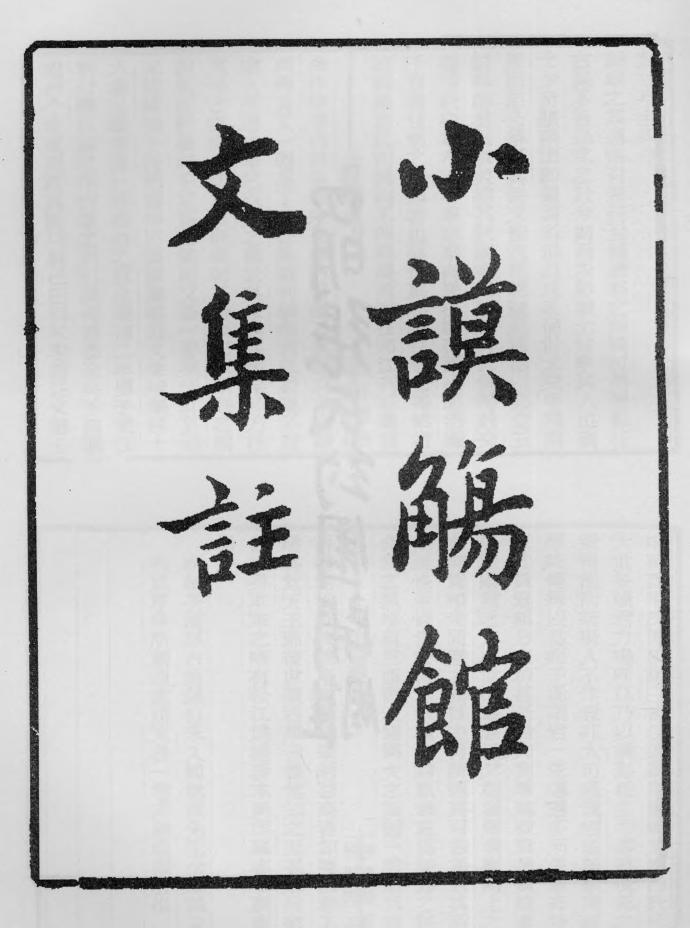 小謨觴館
文集註